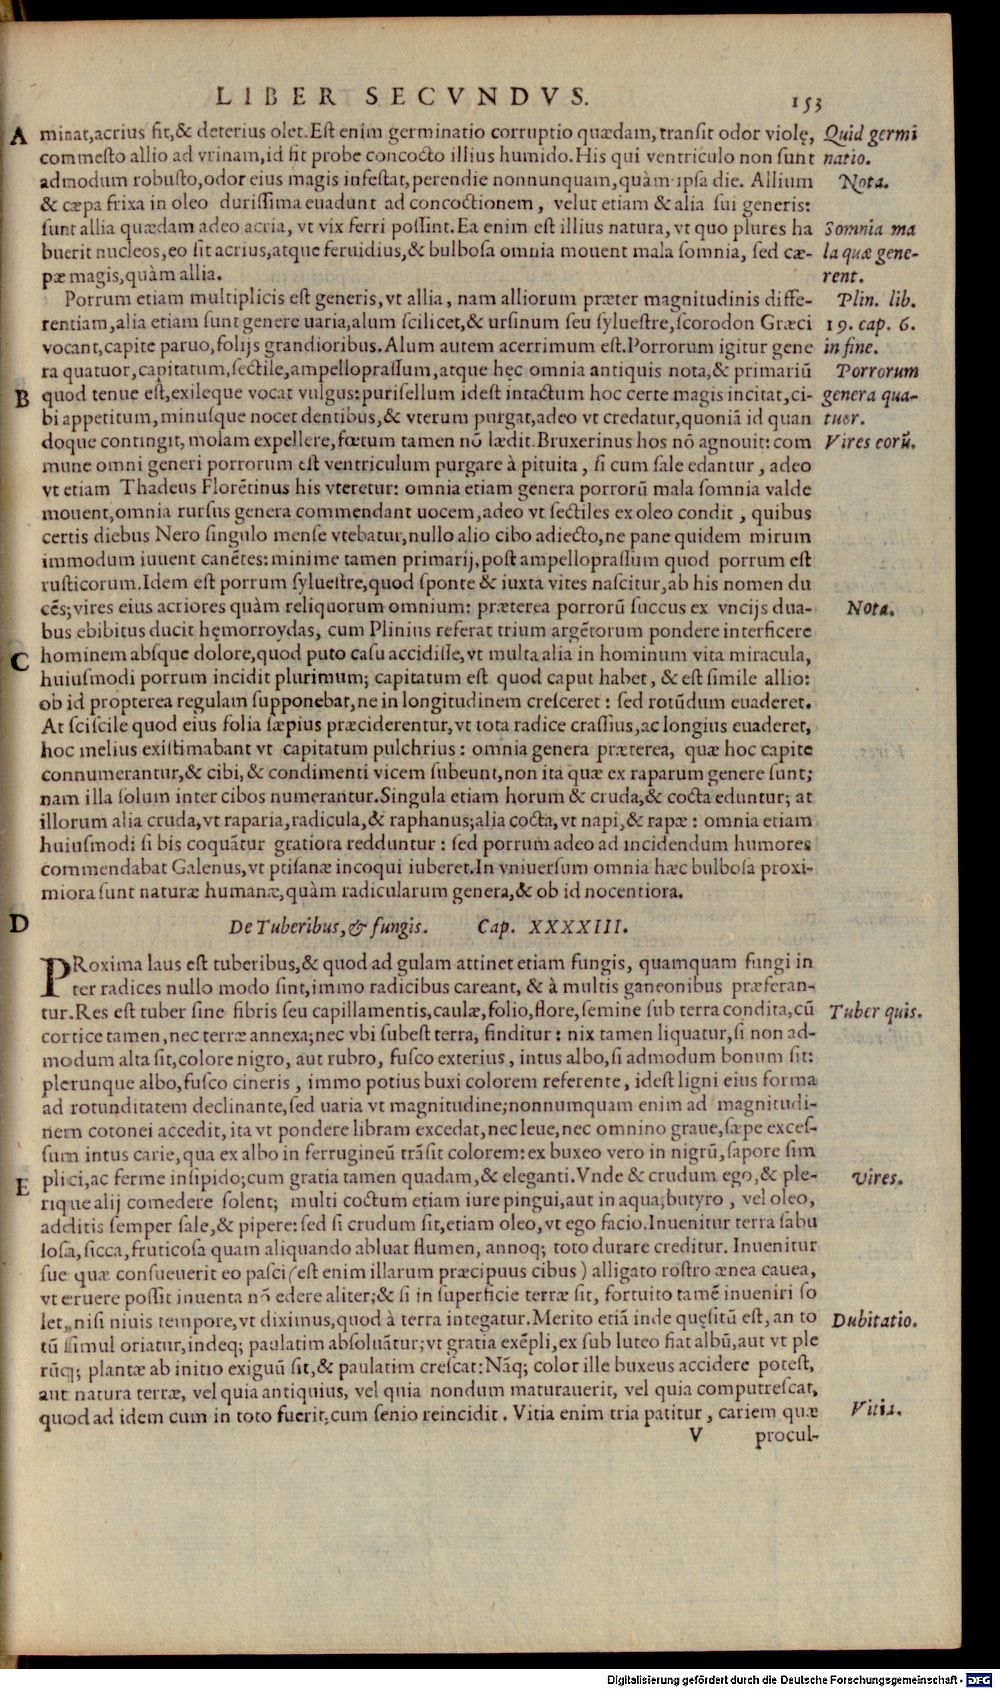 LIBER SECVNDVS. 153
A minat,acrius fit,& deterius olet.Est enim germinatio corruptio quædam, transit odor violę, Quid germi
commesto allio ad vrinam,id fit probe concocto illius humido.His qui ventriculo non sunt natio.
admodum robusto,odor eius magis infestat,perendie nonnunquam,quàm ipsa die. Allium Nota.
& cæpa frixa in oleo durissima euadunt ad concoctionem, velut etiam & alia sui generis:
sunt allia quædam adeo acria, vt vix ferri possint.Ea enim est illius natura, vt quo plures ha Somnia ma
buerit nucleos,eo sit acrius,atque feruidius,& bulbosa omnia mouent mala somnia, sed cæ- la quæ gene-
pæ magis,quàm allia. rent.
Porrum etiam multiplicis est generis,vt allia, nam alliorum præter magnitudinis diffe- Plin. lib.
rentiam,alia etiam sunt genere uaria,alum scilicet,& ursinum seu syluestre,scorodon Græci 19. cap. 6.
vocant,capite paruo,folijs grandioribus.Alum autem acerrimum est.Porrorum igitur gene in fine.
ra quatuor,capitatum,sectile,ampelloprassum,atque hęc omnia antiquis nota,& primariū Porrorum
B quod tenue est,exileque vocat vulgus:purisellum idest intactum hoc certe magis incitat,ci- genera qua-
bi appetitum,minusque nocet dentibus,& vterum purgat,adeo vt credatur,quoniā id quan tuor.
doque contingit, molam expellere,fœtum tamen nō lædit.Bruxerinus hos nō agnouit: com Vires eorū.
mune omni generi porrorum est ventriculum purgare à pituita, si cum sale edantur, adeo
vt etiam Thadeus Florētinus his vteretur: omnia etiam genera porrorū mala somnia valde
mouent,omnia rursus genera commendant uocem,adeo vt sectiles ex oleo condit, quibus
certis diebus Nero singulo mense vtebatur,nullo alio cibo adiecto,ne pane quidem mirum
immodum iuuent canētes: minime tamen primarij,post ampelloprassum quod porrum est
rusticorum.Idem est porrum syluestre,quod sponte & iuxta vites nascitur,ab his nomen du
cēs;vires eius acriores quàm reliquorum omnium: præterea porrorū succus ex vncijs dua- Nota.
bus ebibitus ducit hęmorroydas, cum Plinius referat trium argētorum pondere interficere
C hominem absque dolore,quod puto casu accidisse,vt multa alia in hominum vita miracula,
huiusmodi porrum incidit plurimum; capitatum est quod caput habet, & est simile allio:
ob id propterea regulam supponebat,ne in longitudinem cresceret: sed rotūdum euaderet.
At sciscile quod eius folia sæpius præciderentur,vt tota radice crassius,ac longius euaderet,
hoc melius existimabant vt capitatum pulchrius: omnia genera præterea, quæ hoc capite
connumerantur,& cibi,& condimenti vicem subeunt,non ita quæ ex raparum genere sunt;
nam illa solum inter cibos numerantur.Singula etiam horum & cruda,& cocta eduntur; at
illorum alia cruda,vt raparia,radicula,& raphanus;alia cocta,vt napi,& rapæ: omnia etiam
huiusmodi si bis coquātur gratiora redduntur: sed porrum adeo ad incidendum humores
commendabat Galenus,vt ptisanæ incoqui iuberet.In vniuersum omnia hæc bulbosa proxi-
miora sunt naturæ humanæ,quàm radicularum genera,& ob id nocentiora.
D De Tuberibus, & fungis. Cap. XXXXIII.
PRoxima laus est tuberibus,& quod ad gulam attinet etiam fungis, quamquam fungi in
ter radices nullo modo sint,immo radicibus careant, & à multis ganeonibus præferan-
tur.Res est tuber sine fibris seu capillamentis,caulæ,folio,flore,semine sub terra condita,cū Tuber quis.
cortice tamen,nec terræ annexa;nec vbi subest terra, finditur: nix tamen liquatur,si non ad-
modum alta sit,colore nigro, aut rubro, fusco exterius, intus albo,si admodum bonum sit:
plerunque albo,fusco cineris, immo potius buxi colorem referente, idest ligni eius forma
ad rotunditatem declinante,sed uaria vt magnitudine;nonnumquam enim ad magnitudi-
nem cotonei accedit, ita vt pondere libram excedat,nec leue,nec omnino graue,sæpe exces-
sum intus carie,qua ex albo in ferrugineū trāsit colorem: ex buxeo vero in nigrū,sapore sim
E plici,ac ferme insipido;cum gratia tamen quadam,& eleganti.Vnde & crudum ego,& ple- Vires.
rique alij comedere solent; multi coctum etiam iure pingui,aut in aqua;butyro, vel oleo,
additis semper sale,& pipere: sed si crudum sit,etiam oleo,vt ego facio.Inuenitur terra sabu
losa,sicca,fruticosa quam aliquando abluat flumen, annoq; toto durare creditur. Inuenitur
sue quæ consueuerit eo pasci (est enim illarum præcipuus cibus) alligato rostro ænea cauea,
vt eruere possit inuenta nō edere aliter;& si in superficie terræ sit, fortuito tamē inueniri so
let, nisi niuis tempore,vt diximus,quod à terra integatur.Merito etiā inde quęsitū est, an to Dubitatio.
tū simul oriatur,indeq; paulatim absoluātur;vt gratia exēpli,ex sub luteo fiat albū,aut vt ple
rūq; plantæ ab initio exiguū sit,& paulatim crescat: Nāq; color ille buxeus accidere potest,
aut natura terræ, vel quia antiquius, vel quia nondum maturauerit, vel quia computrescat,
quod ad idem cum in toto fuerit,cum senio reincidit. Vitia enim tria patitur, cariem quæ Vitia.
V procul-
Digitalisierung gefördert durch die Deutsche Forschungsgemeinschaft - DFG